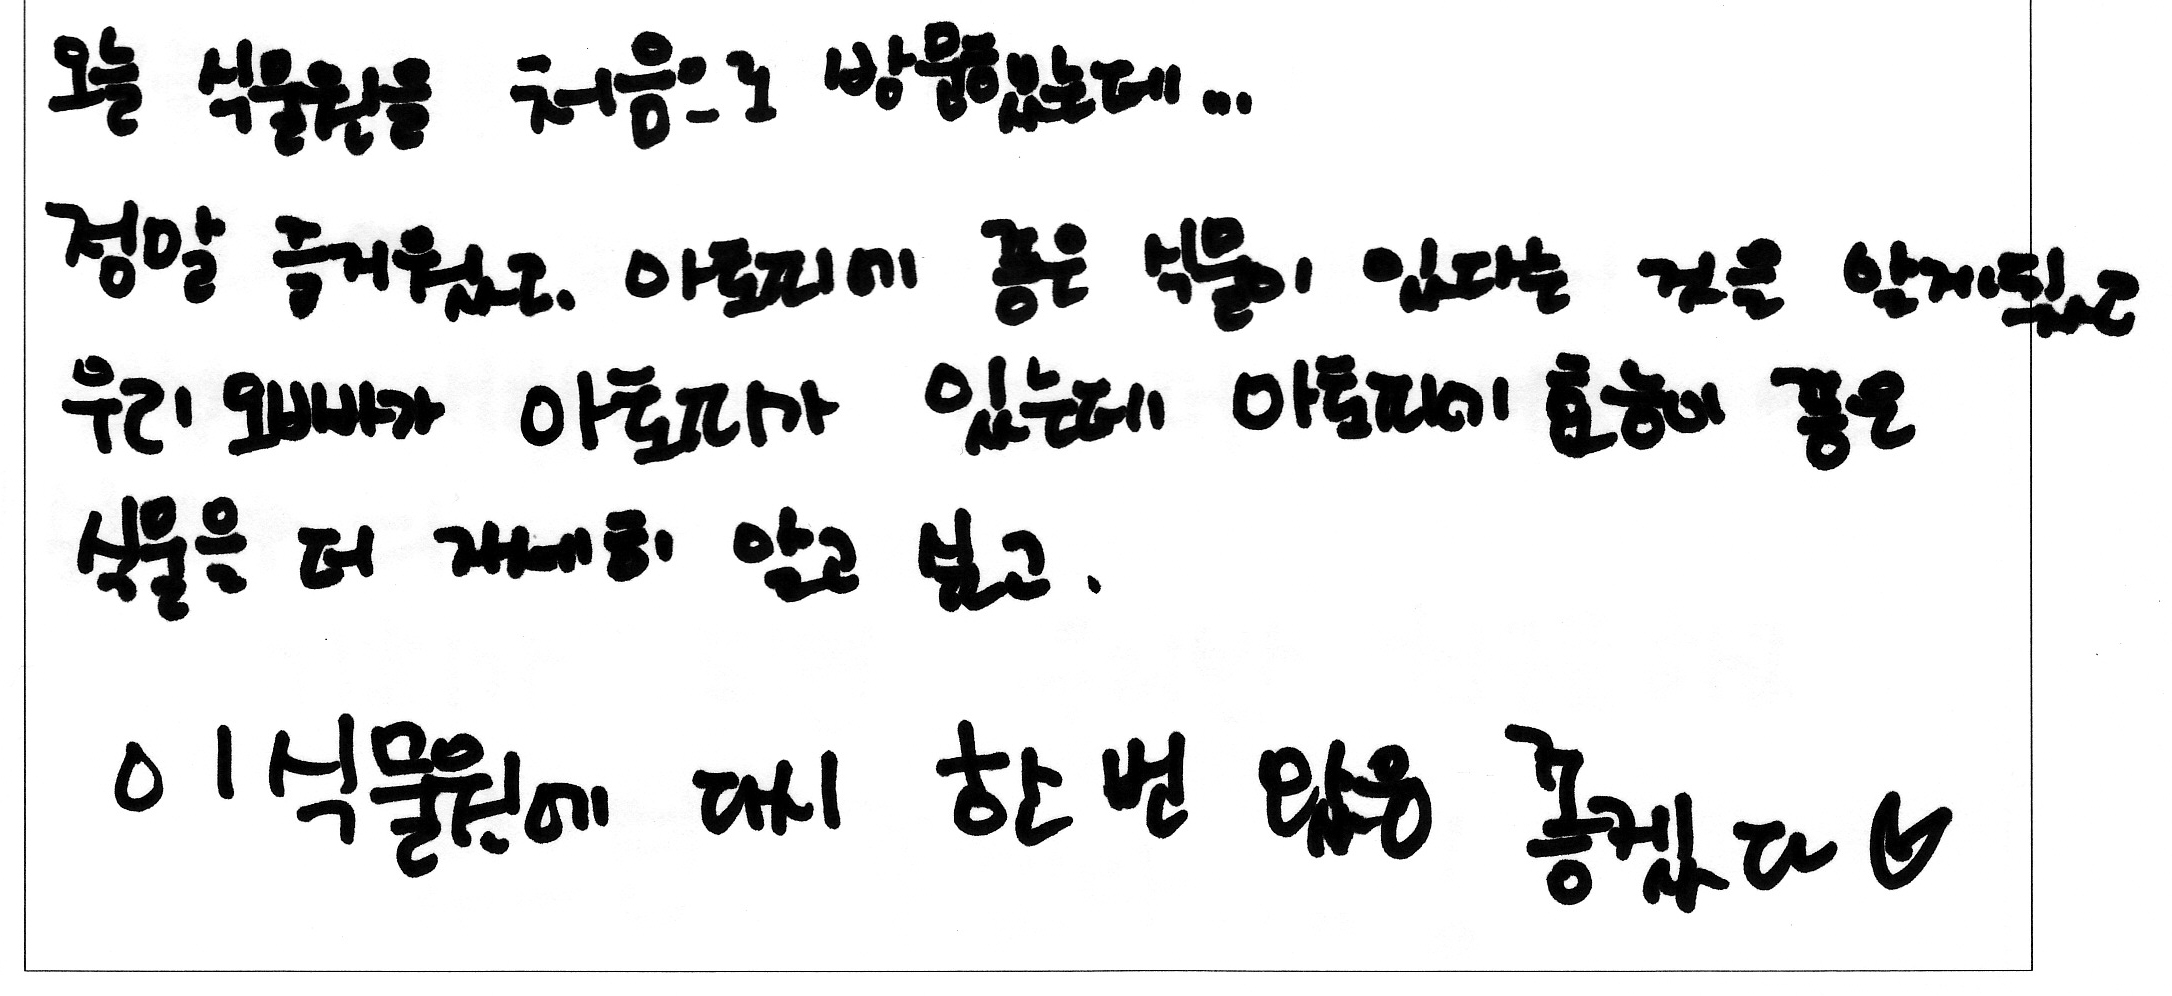 오늘 식물원을 처음으로 방문했는데...
정말 즐거웠고. 아토피에 좋은 식물이 있다는 것을 알게됬고
우리 오빠가 아토피가 있는데 아토피에 효능이 좋은
식물을 더 자세히 알고 싶고.
이 식물원에 다시 한 번 왔음 좋겠다♡